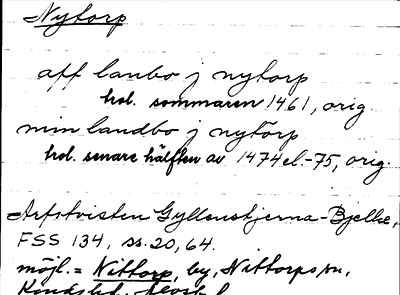 Nytorp
aff lanbo j nytorp
hol. sommaren 1461, orig
min landbo j nytorp
hol. senare hälften av 1474 el.-75, orig.
Arfstvisten Gyllenstjerna-Bjelke,
FSS 134, ss. 20, 64.
möjl. = Nittorp, by, Nittorps sn,